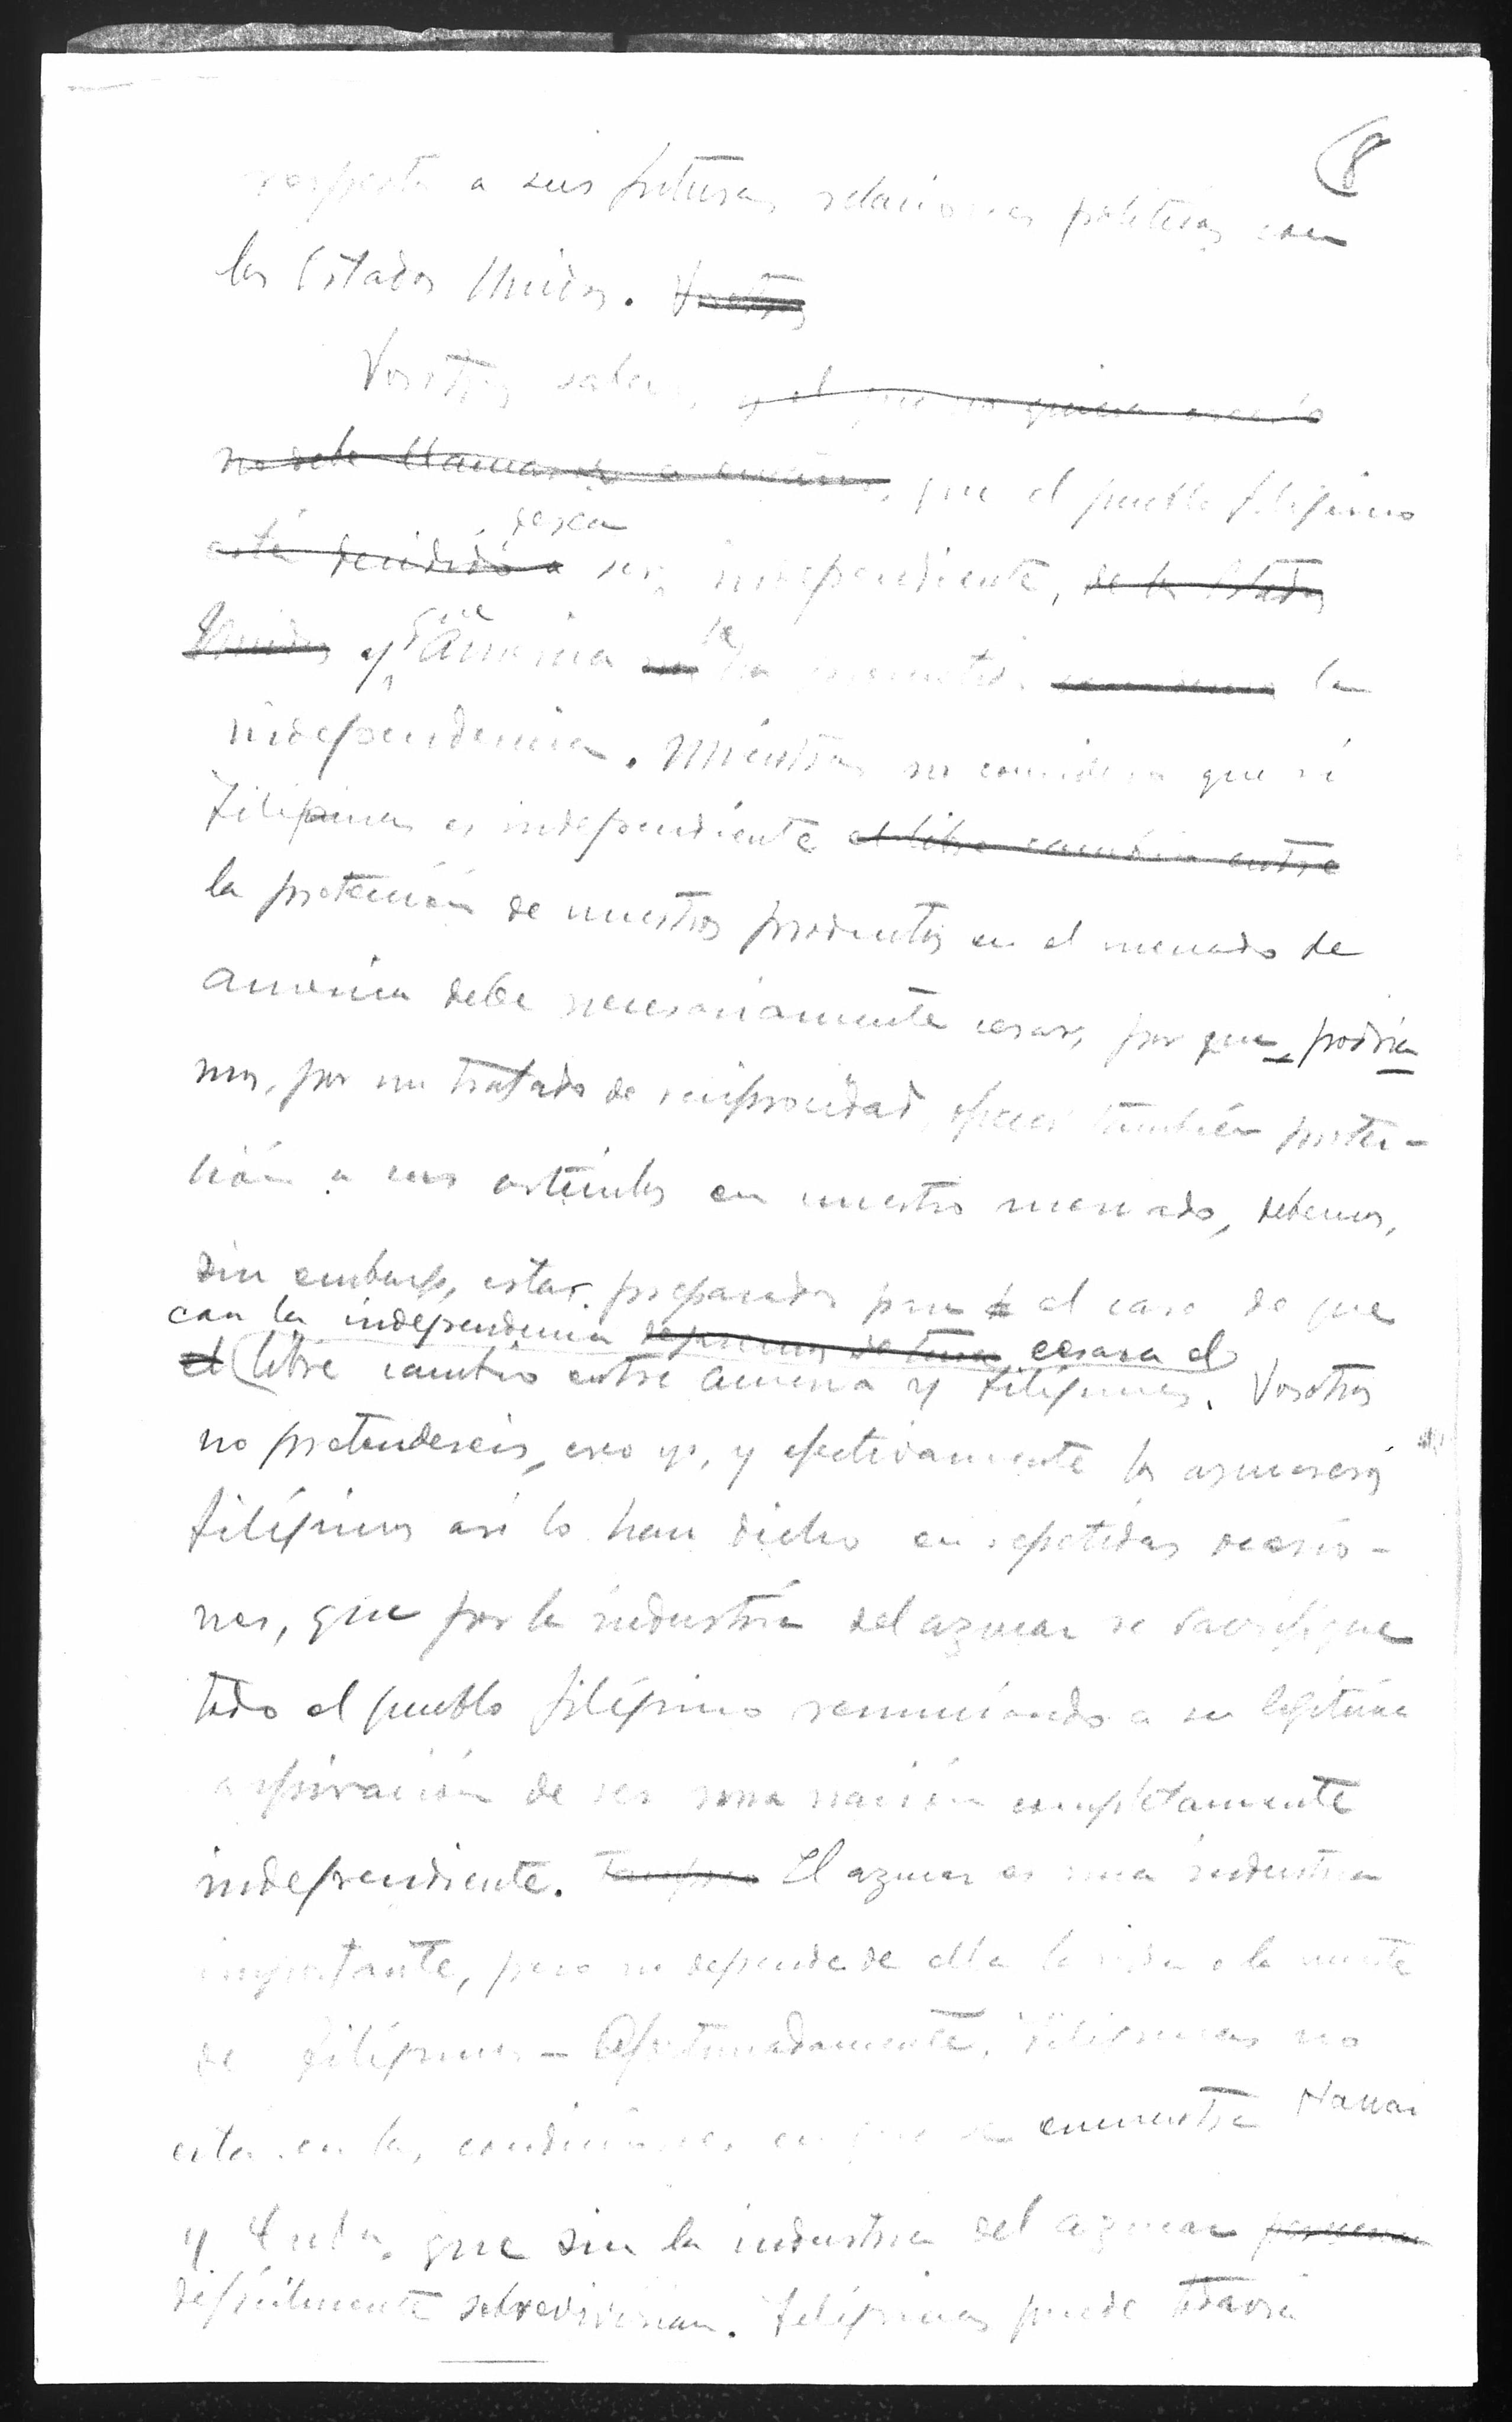 8
respecto a sus futuras relaciones politicas con
los Estados Unidos. Vosotros
Vosotros sabeis, y el que no quiera creerlo
no debe llamarse a engaño, que el pueblo filipino
desea
está decidido a ser independiente, de los Estados
Unidos y que America le ha prometido la
independencia. Mientras no considera que si
Filipinas es independiente el libre cambio entre
la protección de nuestros productos en el mercado de
America debe necesariamente cesar, por que podria
mos, por un tratado de reciprocidad, ofrecer también protec-
ción a sus artículos en nuestro mercado, debemos,
sin embargo, estar preparados para el caso de que
con la independencia cesara el
el libre cambio entre America y Filipinas. Vosotros
no pretendereis, creo yo, y efectivamente los azucareros
filipinos asi lo han dicho en repetidas ocasio-
nes, que por la industria del azucar se sacrifique
todo el pueblo filipino renunciando a su legitima
aspiración de ser una nación completamente
independiente. Tampoco El azucar es una industria
importante, pero no depende de ella la vida o la muerte
de Filipinas - Afortunadamente, Filipinas no
esta en las condiciones en que se encuentra Hawai
y Cuba, que sin la industria del azucar
dificilmente sobrevivirian. Filipinas puede todavia